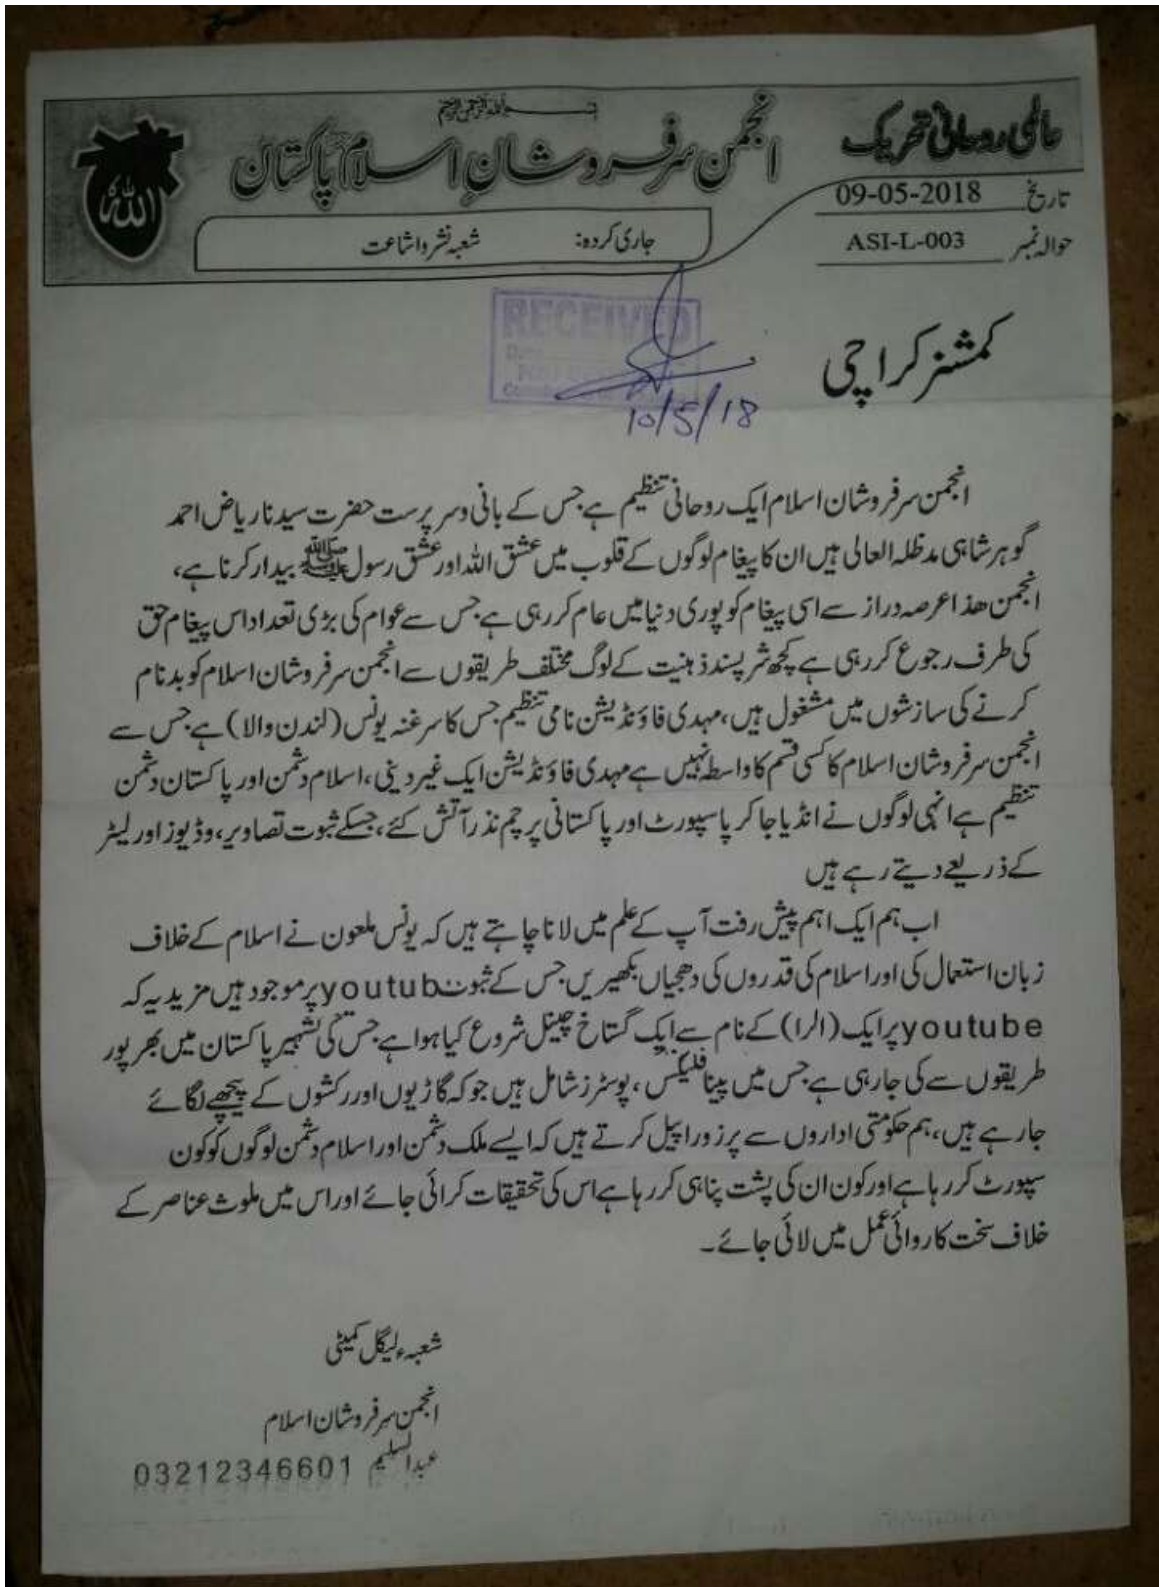 بسم اللہ الرحمن الرحیم
عالمی روحانی تحریک
انجمن سرفروشانِ اسلام پاکستان
تاریخ 09-05-2018
حوالہ نمبر ASI-L-003
جاری کردہ: شعبہ نشر و اشاعت
اللہ
RECEIVED
10/5/18
کمشنر کراچی
انجمن سرفروشان اسلام ایک روحانی تنظیم ہے جس کے بانی و سرپرست حضرت سیدنا ریاض احمد
گوہر شاہی مدظلہ العالی ہیں ان کا پیغام لوگوں کے قلوب میں عشق اللہ اور عشق رسول ﷺ بیدار کرنا ہے،
انجمن ھذا عرصہ دراز سے اسی پیغام کو پوری دنیا میں عام کر رہی ہے جس سے عوام کی بڑی تعداد اس پیغام حق
کی طرف رجوع کر رہی ہے کچھ شر پسند ذہنیت کے لوگ مختلف طریقوں سے انجمن سرفروشان اسلام کو بدنام
کرنے کی سازشوں میں مشغول ہیں، مہدی فاؤنڈیشن نامی تنظیم جس کا سرغنہ یونس (لندن والا) ہے جس سے
انجمن سرفروشان اسلام کا کسی قسم کا واسطہ نہیں ہے مہدی فاؤنڈیشن ایک غیر دینی، اسلام دشمن اور پاکستان دشمن
تنظیم ہے انہی لوگوں نے انڈیا جا کر پاسپورٹ اور پاکستانی پرچم نذر آتش کئے، جسکے ثبوت تصاویر، وڈیوز اور لیٹر
کے ذریعے دیتے رہے ہیں
اب ہم ایک اہم پیش رفت آپ کے علم میں لانا چاہتے ہیں کہ یونس ملعون نے اسلام کے خلاف
زبان استعمال کی اور اسلام کی قدروں کی دھجیاں بکھیریں جس کے ثبوت youtub پر موجود ہیں مزید یہ کہ
youtube پر ایک (الرا) کے نام سے ایک گستاخ چینل شروع کیا ہوا ہے جس کی تشہیر پاکستان میں بھرپور
طریقوں سے کی جا رہی ہے جس میں پینا فلیکس، پوسٹرز شامل ہیں جو کہ گاڑیوں اور رکشوں کے پیچھے لگائے
جا رہے ہیں، ہم حکومتی اداروں سے پر زور اپیل کرتے ہیں کہ ایسے ملک دشمن اور اسلام دشمن لوگوں کو کون
سپورٹ کر رہا ہے اور کون ان کی پشت پناہی کر رہا ہے اس کی تحقیقات کرائی جائے اور اس میں ملوث عناصر کے
خلاف سخت کاروائی عمل میں لائی جائے۔
شعبہء لیگل کمیٹی
انجمن سرفروشان اسلام
عبدالسلیم 03212346601